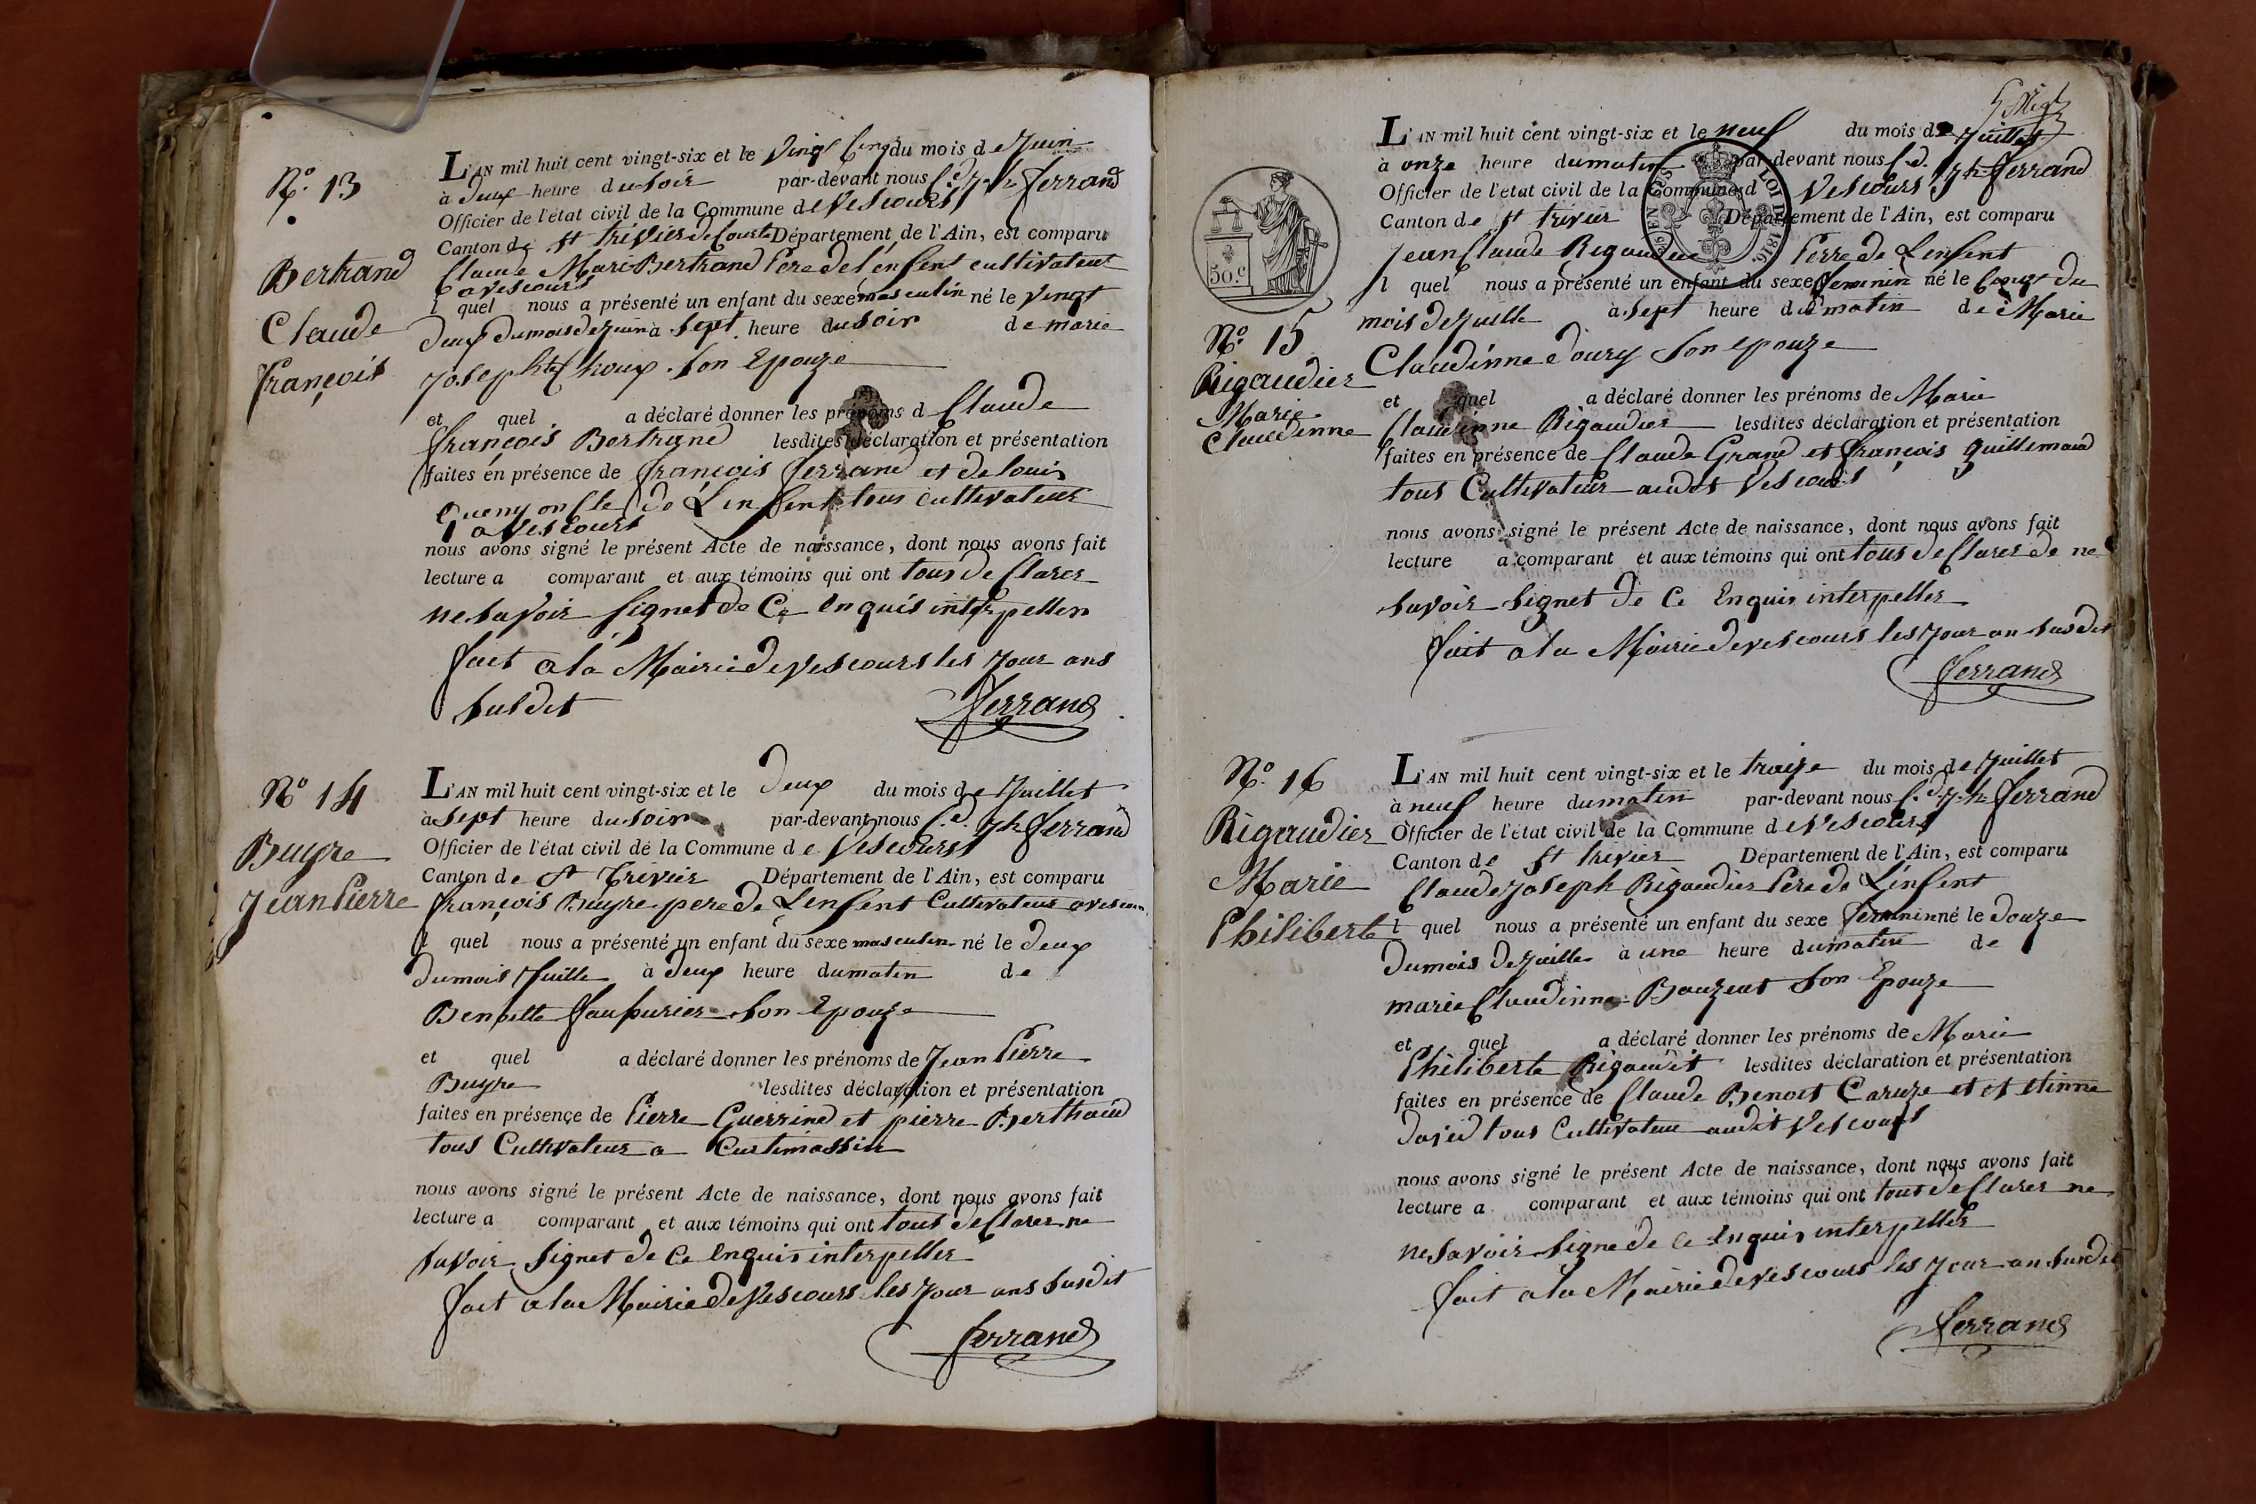 N.o 13
Bertrand
Claude
françois
L'AN mil huit cent vingt-six et le vingt cinq du mois de Juin
à deux heure du soir par-devant nous C.d J.h ferrand
Officier de l'état civil de la Commune de Vescours
Canton de St trivier de Courte Département de l'Ain, est comparu
Claude Marie Bertrand Pere de l'enfent cultivateur
a vescours
l quel nous a présenté un enfant du sexe masculin né le vingt
deux du mois de Juin à sept heure du soir de marie
Joseph Choux son Epouze
et quel a déclaré donner les prénoms d Claude
françois Bertrand lesdites déclaration et présentation
faites en présence de françois ferrand et de louis
de L'enfent tous cultivateur
a vescours
nous avons signé le présent Acte de naissance, dont nous avons fait
lecture a comparant et aux témoins qui ont tous de Clarer
ne savoir signer de Ce Enquis interpeller
fait a la Mairie de vescours les Jour ans
susdit
ferrand
N.o 14
Buyre
Jean Pierre
L'AN mil huit cent vingt-six et le deux du mois de Juillet
à sept heure du soir par-devant nous C.d J.h ferrand
Officier de l'état civil de la Commune d e Vescours
Canton de St Trivier Département de l'Ain, est comparu
françois Buyre pere de L'enfent Cultivateur a vescours
l quel nous a présenté un enfant du sexe masculin né le deux
du mois Juille à deux heure du maten de
Benoitte son Epouze
et quel a déclaré donner les prénoms de Jean Pierre
Buyre lesdites déclaration et présentation
faites en présence de Pierre Guerrind et pierre Berthaud
tous Cultivateur a Curtimassin
nous avons signé le présent Acte de naissance, dont nous avons fait
lecture a comparant et aux témoins qui ont tous de Clarer ne
savoir signet de Ce Enquis interpeller
fait a la Mairie de Vescours les Jour ans susdit
ferrand
50.c
1826 EN SUS LOI DE 1816
N.o 15
Rigaudier
Marie
Claudinne
L'AN mil huit cent vingt-six et le neuf du mois de Juillet
à onze heure du maten par-devant nous C.d. J.h ferrand
Officier de l'état civil de la Commune d Vescours
Canton de St trivier Département de l'Ain, est comparu
Jean Claude Rigaudier Perre de L'enfent
l quel nous a présenté un enfant du sexe feminin né le du
mois de Juille à sept heure du maten de Marie
Claudinne Doury son epouze
et quel a déclaré donner les prénoms de Marie
Claudinne Rigaudier lesdites déclaration et présentation
faites en présence de Claude Grand et françois guillemaud
tous Cultivateur audit Vescours
nous avons signé le présent Acte de naissance, dont nous avons fait
lecture a comparant et aux témoins qui ont tous de Clarer de ne
savoir signet de Ce Enquis interpeller
fait a la Mairie de vescours les Jour an susdit
ferrand
N.o 16
Rigaudier
Marie
Philiberte
L'AN mil huit cent vingt-six et le traize du mois de Juillet
à neuf heure du maten par-devant nous C.d J.h ferrand
Officier de l'état civil de la Commune d e Vescours
Canton de St trivier Département de l'Ain, est comparu
Claude Joseph Rigaudier Pere de L'enfent
l quel nous a présenté un enfant du sexe feminin né le douze
du mois de Juille à une heure du maten de
marie Claudinne Bouzeut son Epouze
et quel a déclaré donner les prénoms de Marie
Philiberte Rigaudit lesdites déclaration et présentation
faites en présence de Claude Benoit Caruze et et etinne
tous Cultivateur audit Vescours
nous avons signé le présent Acte de naissance, dont nous avons fait
lecture a comparant et aux témoins qui ont tous de Clarer ne
ne savoir signe de ce Enquis interpeller
fait a la Mairie de vescours les Jour an susdit
ferrand